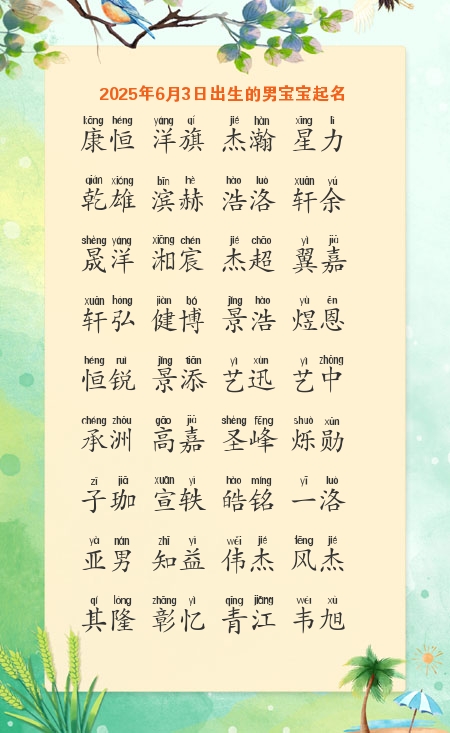 2025年6月3日出生的男宝宝起名
kāng héng yáng qí jié hàn xīng lì
康恒 洋旗 杰瀚 星力
qián xióng bīn hè hào luò xuān yú
乾雄 滨赫 浩洛 轩余
shèng yáng xiāng chén jié chāo yì jiā
晟洋 湘宸 杰超 翼嘉
xuān hóng jiàn bó jǐng hào yù ēn
轩弘 健博 景浩 煜恩
héng ruì jǐng tiān yì xùn yì zhōng
恒锐 景添 艺迅 艺中
chéng zhōu gāo jiā shèng fēng shuò xūn
承洲 高嘉 圣峰 烁勋
zǐ jiā xuān yì hào míng yī luò
子珈 宣轶 皓铭 一洛
yà nán zhī yì wěi jié fēng jié
亚男 知益 伟杰 风杰
qí lóng zhāng yì qīng jiāng wéi xù
其隆 彰忆 青江 韦旭